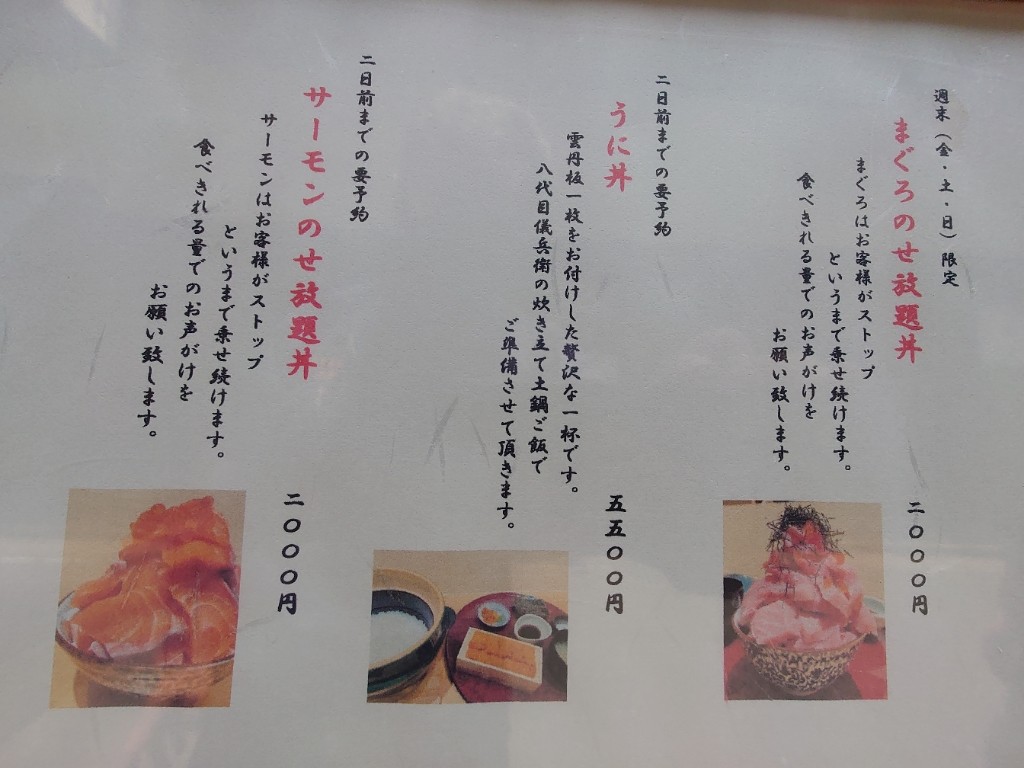 週末（金・土・日）限定
まぐろのせ放題丼
まぐろはお客様がストップ
というまで乗せ続けます。
食べきれる量でのお声がけを
お願い致します。
二〇〇〇円
二日前までの要予約
うに丼
雲丹板一枚をお付けした贅沢な一杯です。
八代目儀兵衛の炊き立て土鍋ご飯で
ご準備させて頂きます。
五五〇〇円
二日前までの要予約
サーモンのせ放題丼
サーモンはお客様がストップ
というまで乗せ続けます。
食べきれる量でのお声がけを
お願い致します。
二〇〇〇円